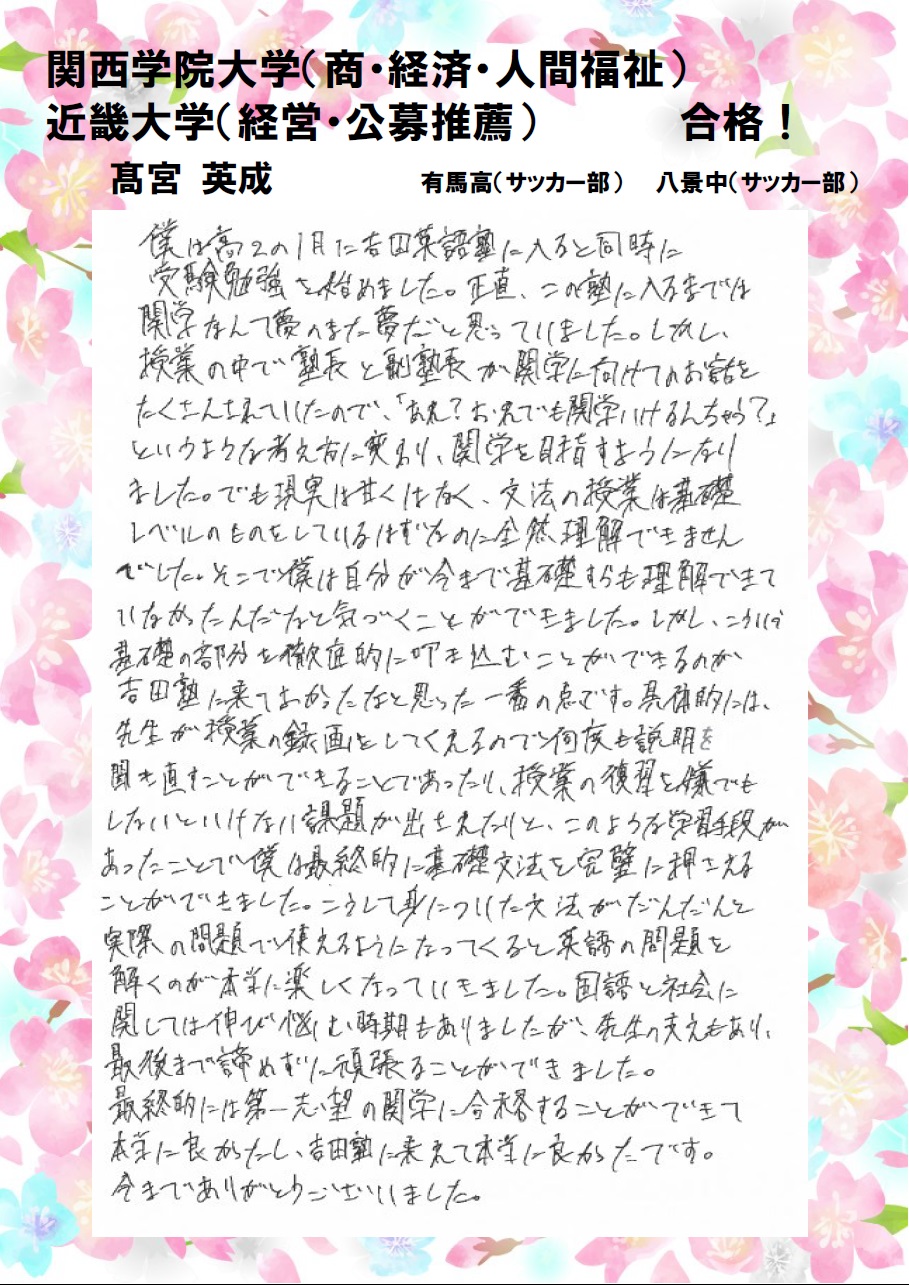 関西学院大学(商・経済・人間福祉)
近畿大学(経営・公募推薦) 合格!
髙宮 英成 有馬高(サッカー部) 八景中(サッカー部)
僕は高2の1月に吉田英語塾に入ると同時に
受験勉強を始めました。正直、この塾に入るまでは
関学なんて夢のまた夢だと思っていました。しかし、
授業の中で塾長と副塾長が関学に向けてのお話を
たくさんされていたので、「あれ?おれでも関学いけるんちゃう?」
というような考え方に変わり、関学を目指すようになり
ました。でも現実は甘くはなく、文法の授業は基礎
レベルのものをしているはずなのに全然理解できません
でした。そこで僕は自分が今まで基礎すらも理解できて
いなかったんだなと気づくことができました。しかし、こういう
基礎の部分を徹底的に叩き込むことができるのが
吉田塾に来てよかったなと思った一番の点です。具体的には、
先生が授業の録画をしてくれるので何度も説明を
聞き直すことができることであったり、授業の復習を嫌でも
しないといけない課題が出されたりと、このような学習手段が
あったことで僕は最終的に基礎文法を完璧に押さえる
ことができました。こうして身についた文法がだんだんと
実際の問題で使えるようになってくると英語の問題を
解くのが本当に楽しくなっていきました。国語と社会に
関しては伸び悩む時期もありましたが、先生の支えもあり、
最後まで諦めずに頑張ることができました。
最終的には第一志望の関学に合格することができて
本当に良かったし、吉田塾に来れて本当に良かったです。
今までありがとうございました。